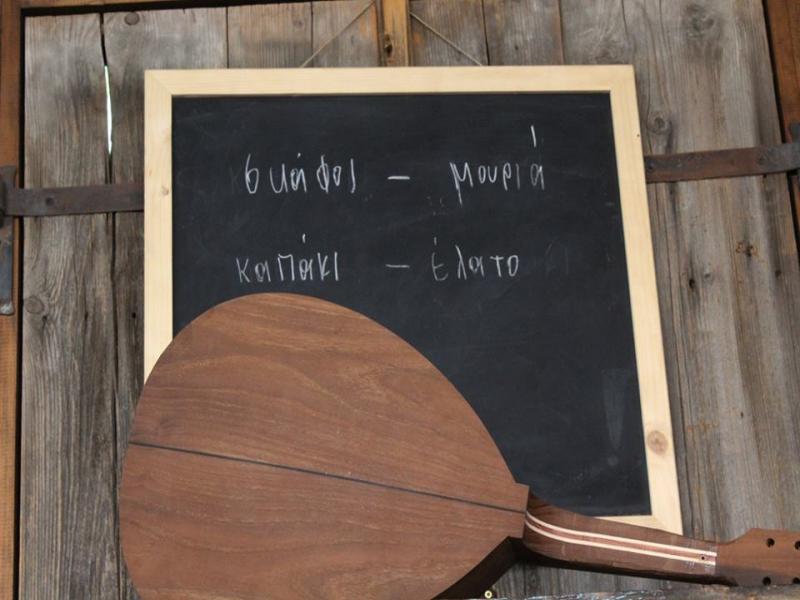 σκάφος - μουριά
καπάκι - έλατο